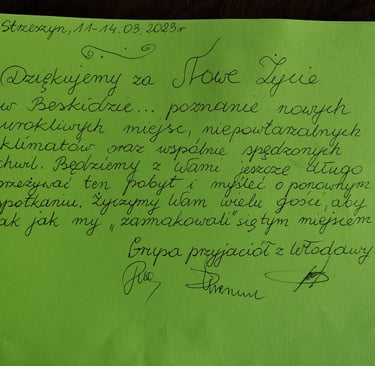 Strzeszyn, 11-14.03.2023r
Dziękujemy za Nowe Życie
w Beskidzie... poznanie nowych
urokliwych miejsc, niepowtarzalnych
klimatów oraz wspólnie spędzonych
chwil. Będziemy z Wami jeszcze długo
przeżywać ten pobyt i myśleć o ponownym
spotkaniu. Życzymy Wam wielu gości, aby
tak jak my „zasmakowali" się tym miejscem
Grupa przyjaciół z Włodawy